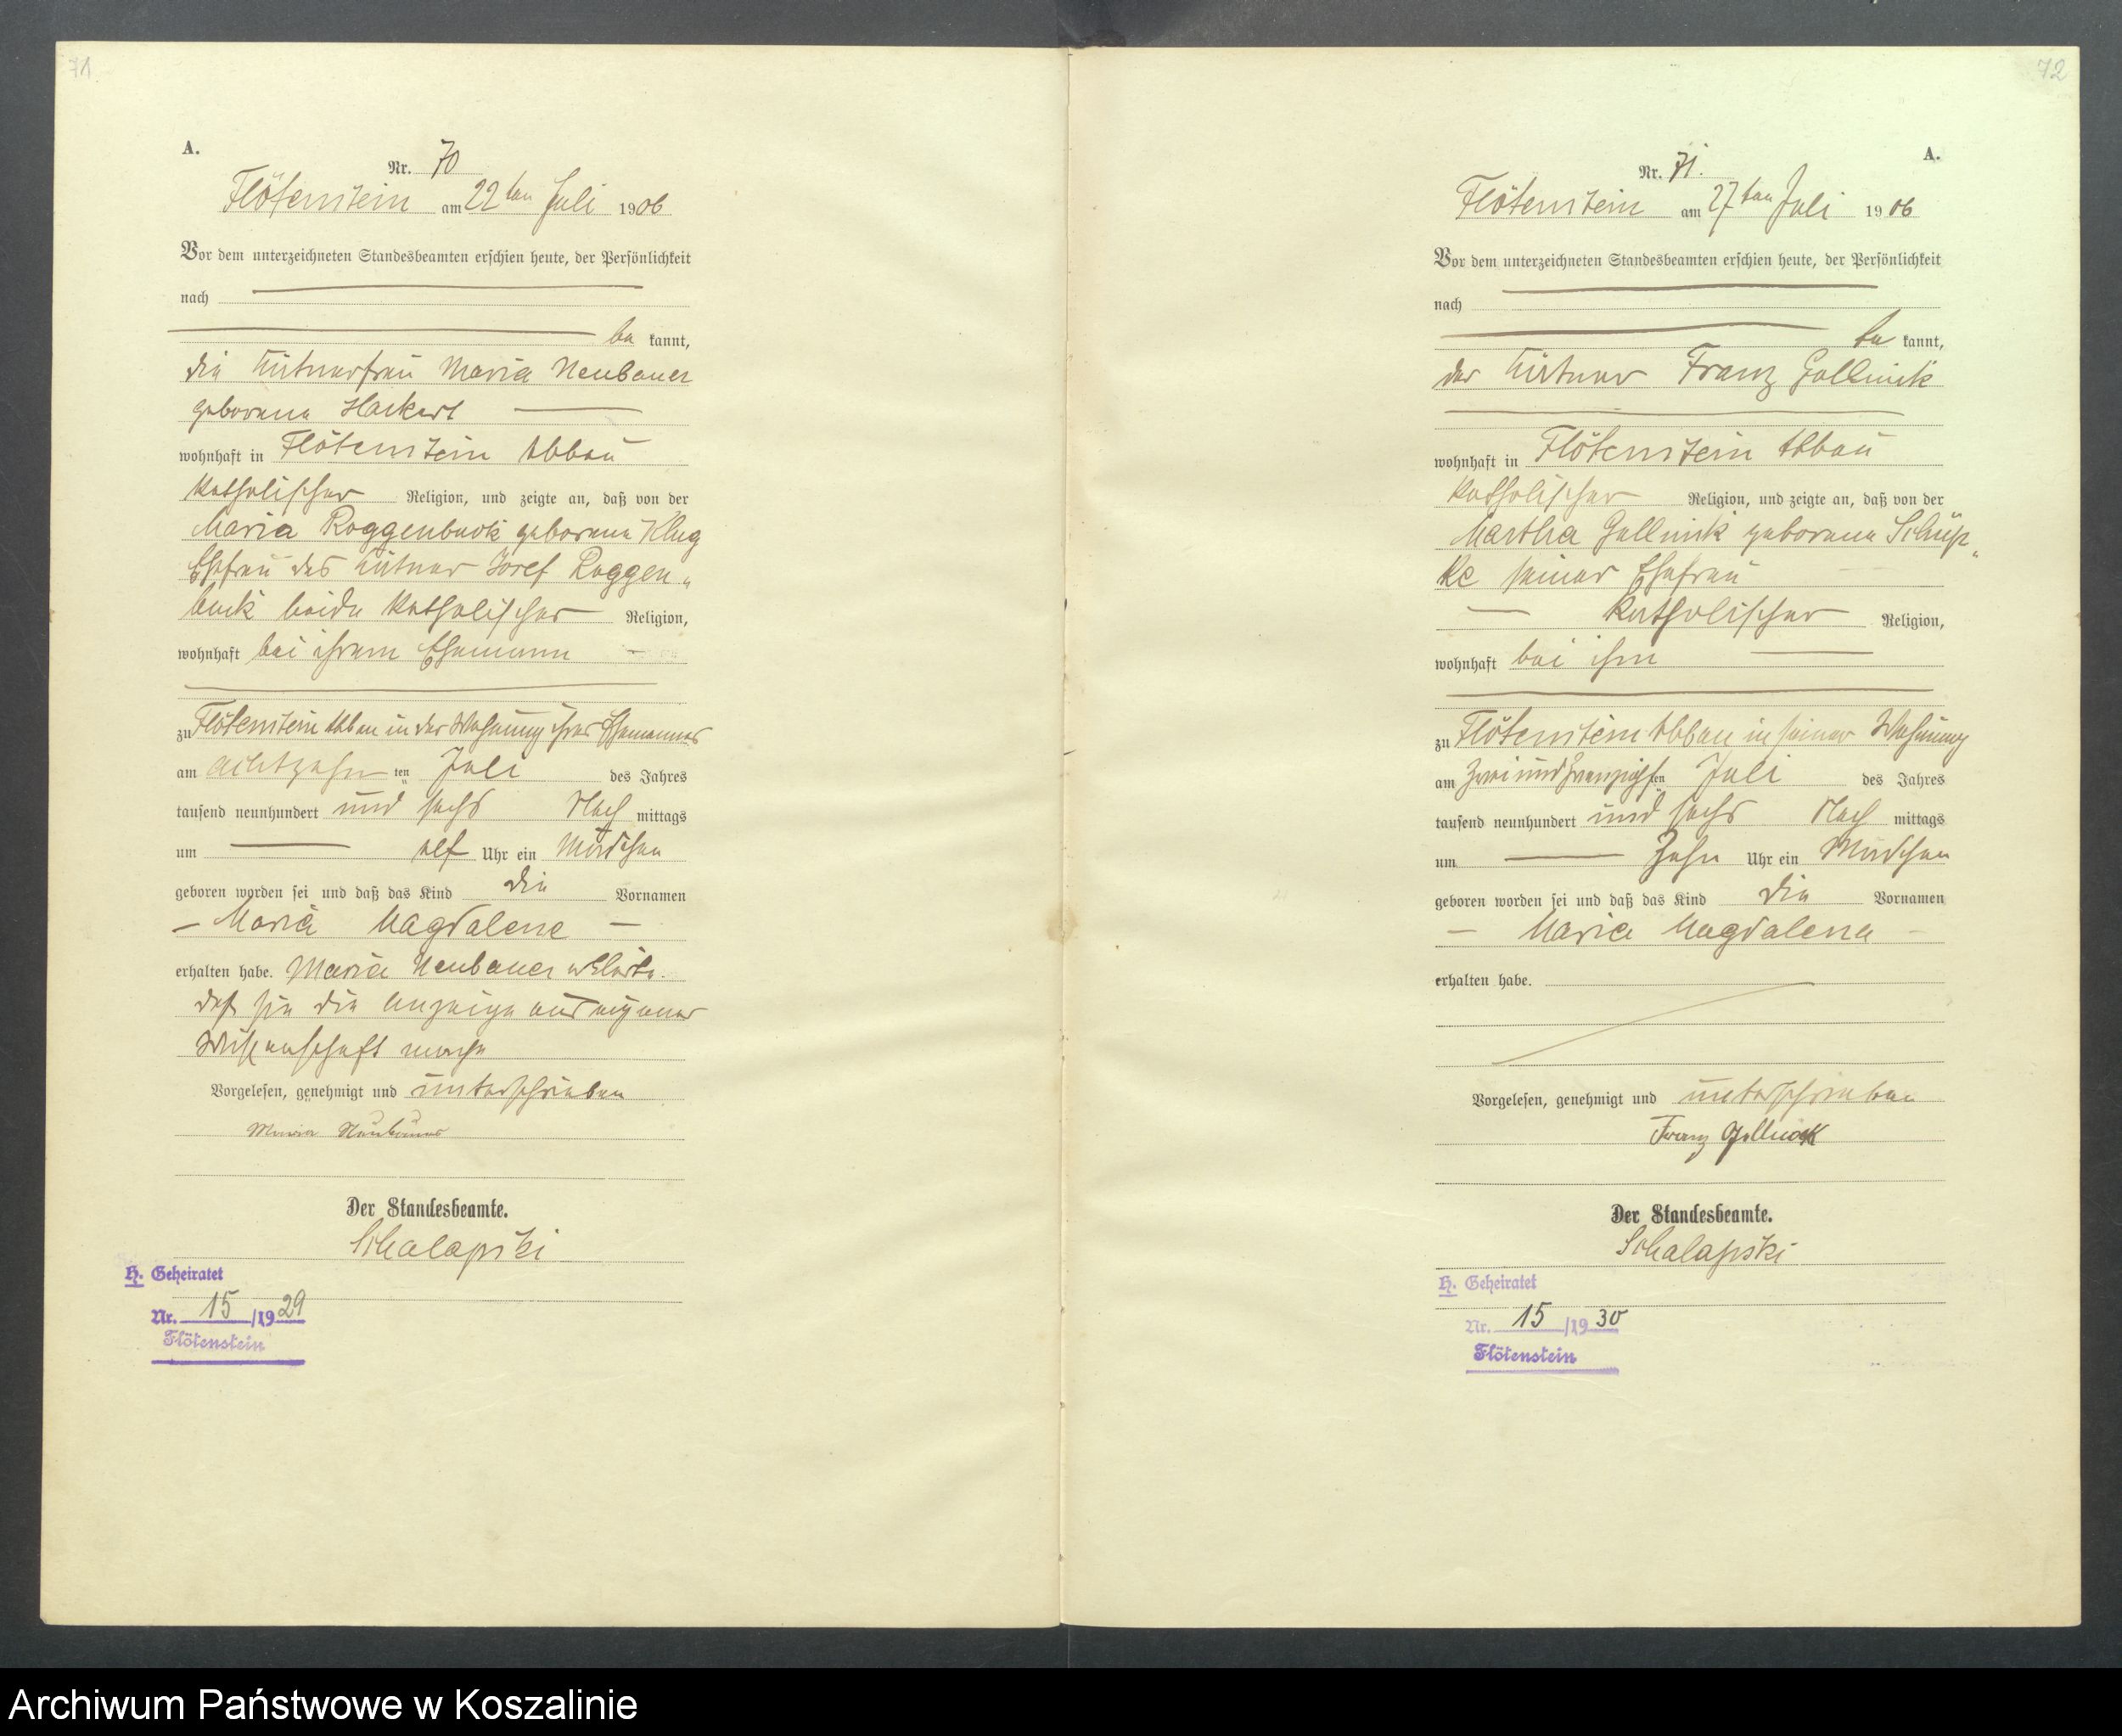 71
A.
Nr. 70
Flötenstein am 22ten Juli 1906
Vor dem unterzeichneten Standesbeamten erschien heute, der Persönlichkeit
nach
be kannt,
die Kätnerfrau Maria Neubauer
geborene Hackert
wohnhaft in Flötenstein Abbau
katholischer Religion, und zeigte an, daß von der
Maria Roggenbuck geborene Klug
Ehefrau des Kätner Josef Roggen„
buck beide katholischer Religion,
wohnhaft bei ihrem Ehemann
zu Flötenstein Abbau in der Wohnung ihres Ehemannes
am achtzehn ten Juli des Jahres
tausend neunhundert und sechs Nach mittags
um elf Uhr ein Mädchen
geboren worden sei und daß das Kind die Vornamen
Maria Magdalene
erhalten habe. Maria Neubauer erklärte
daß sie die Anzeige aus eigener
Wissenschaft mache
Vorgelesen, genehmigt und unterschrieben
Maria Neubauer
Der Standesbeamte.
Schalapski
H. Geheiratet
Nr. 15 /1929
Flötenstein
72
A.
Nr. 71.
Flötenstein am 27ten Juli 1906
Vor dem unterzeichneten Standesbeamten erschien heute, der Persönlichkeit
nach
be kannt,
der Kätner Franz Gollnick
wohnhaft in Flötenstein Abbau
katholischer Religion, und zeigte an, daß von der
Martha Gollnick geborene Schüp„
ke seiner Ehefrau
katholischer Religion,
wohnhaft bei ihm
zu Flötenstein Abbau in seiner Wohnung
am zweiundzwanzigsten Juli des Jahres
tausend neunhundert und sechs Nach mittags
um zehn Uhr ein Mädchen
geboren worden sei und daß das Kind die Vornamen
Maria Magdalena
erhalten habe.
Vorgelesen, genehmigt und unterschrieben
Franz Gollnick
Der Standesbeamte.
Schalapski
H. Geheiratet
Nr. 15 /1930
Flötenstein
Archiwum Państwowe w Koszalinie